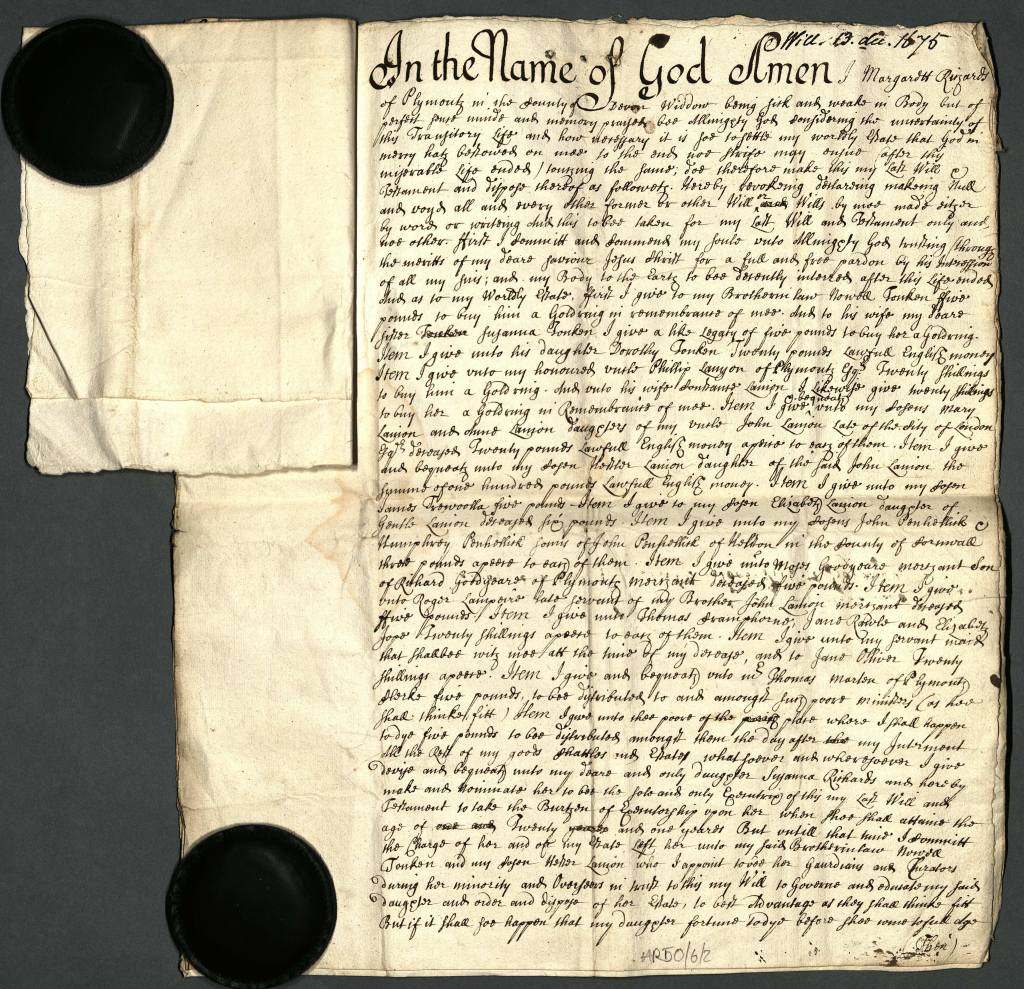 Will. 13. dec. 1675
In the Name of God Amen I Margarett Richards
of Plymouth in the County of Devon Widdow being sick and weake in Body but of
perfect sence minde and memory praysed bee Allmighty God considering the uncertainty of
this Transitory Life and how necessary it is soe to settle my worldly Estate that God in
mercy hath bestowed on mee to the end noe strife may ensue after this
miserable Life ended touching the same; doe therefore make this my Last Will
Testament and dispose thereof as followeth. Hereby revokeing declareing makeing Null
and voyd all and every other former or other Will or Wills by mee made either
by word or writeing And this to bee taken for my Last Will and Testament only and
noe other. ffirst I Committ and Commend my Soule unto Allmighty God trusting through
the meritts of my deare saviour Jesus Christ for a full and free pardon by his Intercession
of all my sins; and my Body to the Earth to bee decently interred after this Life ended
And as to my Worldly Estate. first I give to my Brotherinlaw Nowell Tonken ffive
pounds to buy him a Goldring in remembrance of mee. And to his wife my deare
sister Susanna Tonken I give a like Legacy of five pounds to buy her a Goldring.
Item I give unto his daughter Dorothy Tonken Twenty pounds Lawfull English money
Item I give unto my honoured uncle Phillip Lanyon of Plymouth Esqr. Twenty shillings
to buy him a Goldring. And unto his wife Lanion I Likewise give twenty shillings
to buy her a Goldring in Remembrance of mee. Item I give & bequeath unto my Cosens Mary
Lanion and Anne Lanion daughters of my uncle John Lanion Late of the City of London
Esqr. deceased Twenty pounds Lawfull English money apeice to each of them. Item I give
and bequeath unto my Cosen Hester Lanion daughter of the said John Lanion the
summe of one hundred pounds Lawfull English money. Item I give unto my Cosen
James Trewoolla five pounds - Item I give to my Cosen Elizabeth Lanion daughter of
Gentle Lanion deceased six pounds Item I give unto my Cosens John Penhellick &
Humphrey Penhellick sonns of John Penhellick of Helston in the County of Cornwall
three pounds apeece to each of them. Item I give unto Moses Goodyeare merchant Son
of Richard Goodyeare of Plymouth merchant deceased five pounds. Item I give
unto Roger Lampeire late servant of my Brother John Lanion merchant deceased
ffive pounds Item I give unto Thomas Cramphorne, Jane Rawle and Elizabeth
Jope Twenty shillings apeece to each of them. Item I give unto my servant maid
that shallbee with mee att the time of my decease, and to Jane Olliver Twenty
shillings apeece. Item I give and bequeath unto mr Thomas Marten of Plymouth
Clerke five pounds, to bee distributed to and amongst such poore ministers (as hee
shall thinke fitt) Item I give unto thee poore of the place where I shall happen
to dye five pounds to bee distributed amongst them the day after my Interment
All the Rest of my goods Chattles and Estate whatsoever and wheresoever I give
devise and bequeath unto my deare and only daughter Susanna Richards and hereby
make and Nominate her to bee the sole and only Executrix of this my Last Will and
Testament to take the Burthen of Executorship upon her when shee shall attaine the
age of Twenty and one yeares But untill that time I Committ
the Charge of her and off my Estate Left her unto my said Brotherinlaw Nowell
Tonken and my Cosen Hester Lanion who I appoint to bee her Gaurdians and Curators
during her minority and Overseers in trust to this my Will to Governe and educate my said
daughter and order and dispose of her Estate, to best Advantage as they shall thinke fitt
But if it shall soe happen that my daughter fortune to dye before shee come to full Age
(Then)
ARDO/6/2